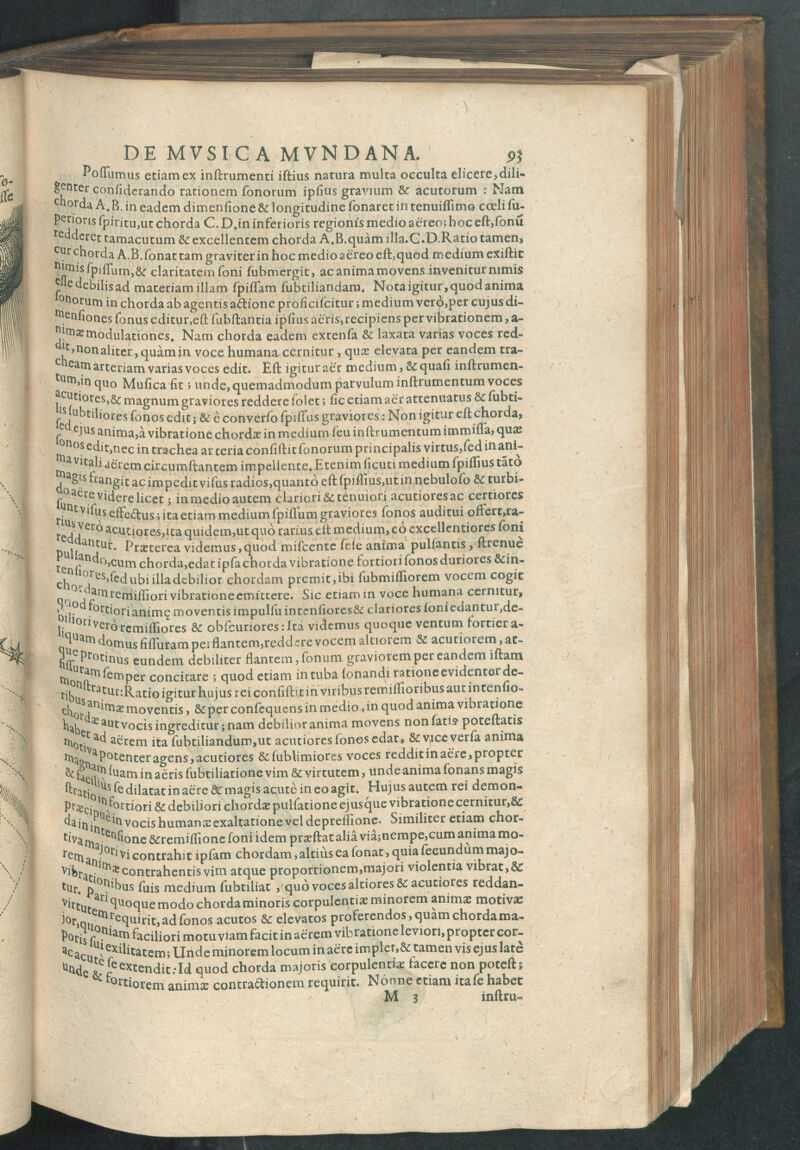 DE MVSICA MVNDANA. 93
Poſſumus etiam ex inſtrumenti iſtius natura multa occulta elicere, dili-
genter conſiderando rationem ſonorum ipſius gravium & acutorum : Nam
chorda A.B. in eadem dimenſione & longitudine ſonaret in tenuiſſimo cœli ſu-
perioris ſpiritu, ut chorda C.D. in inferioris regionis medio aëreo; hoc eſt, ſonũ
redderet tam acutum & excellentem chorda A.B. quàm illa. C.D. Ratio tamen,
cur chorda A.B. ſonat tam graviter in hoc medio aëreo eſt, quod medium exiſtit
nimis ſpiſſum, & claritatem ſoni ſubmergit, ac anima movens invenitur nimis
eſſe debilis ad materiam illam ſpiſſam ſubtiliandam. Nota igitur, quod anima
ſonorum in chorda ab agentis actione proficiſcitur; medium verò, per cujus di-
menſiones ſonus editur, eſt ſubſtantia ipſius aëris, recipiens per vibrationem, a-
nimæ modulationes. Nam chorda eadem extenſa & laxata varias voces red-
dit, non aliter, quàm in voce humana cernitur, quæ elevata per eandem tra-
cheam arteriam varias voces edit. Eſt igitur aër medium, & quaſi inſtrumen-
tum, in quo Muſica fit; unde, quemadmodum parvulum inſtrumentum voces
acutiores, & magnum graviores reddere ſolet; ſic etiam aër attenuatus & ſubti-
lis ſubtiliores ſonos edit; & è converſo ſpiſſus graviores: Non igitur eſt chorda,
ſed ejus anima, à vibratione chordæ in medium ſeu inſtrumentum immiſſa, quæ
ſonos edit, nec in trachea arteria conſiſtit ſonorum principalis virtus, ſed in ani-
ma vitali aërem circumſtantem impellente. Etenim ſicuti medium ſpiſſius tātò
magis frangit ac impedit viſus radios, quantò eſt ſpiſſius, ut in nebuloſo & turbi-
do aëre videre licet; in medio autem clariori & tenuiori acutiores ac certiores
ſunt viſus effectus; ita etiam medium ſpiſſum graviores ſonos auditui offert, ra-
rius verò acutiores, ita quidem, ut quò rarius eſt medium, eò excellentiores ſoni
reddantur. Præterea videmus, quod miſcente ſeſe anima pulſantis, ſtrenuè
pulſando, cum chorda, edat ipſa chorda vibratione fortiori ſonos duriores & in-
tenſiores, ſed ubi illa debilior chordam premit, ibi ſubmiſſiorem vocem cogit
chordam remiſſiori vibratione emittere. Sic etiam in voce humana cernitur,
quod fortiori animę moventis impulſu intenſiores & clariores ſoni edantur, de-
biliori verò remiſſiores & obſcuriores: Ita videmus quoque ventum fortier a-
liquam domus fiſſuram perflantem, reddere vocem altiorem & acutiorem, at-
que protinus eundem debiliter flantem, ſonum graviorem per eandem iſtam
fiſſuram ſemper concitare; quod etiam in tuba ſonandi ratione evidenter de-
monſtratur: Ratio igitur hujus rei conſiſtit in viribus remiſſioribus aut intenſio-
ribus animæ moventis, & per conſequens in medio, in quod anima vibratione
chordæ aut vocis ingreditur; nam debilior anima movens non ſatis poteſtatis
habet ad aërem ita ſubtiliandum, ut acutiores ſonos edat, & vice verſa anima
motiva potenter agens, acutiores & ſublimiores voces reddit in aëre, propter
magnam ſuam in aëris ſubtiliatione vim & virtutem, unde anima ſonans magis
& facilius ſe dilatat in aëre & magis acutè in eo agit. Hujus autem rei demon-
ſtratio in fortiori & debiliori chordæ pulſatione ejusque vibratione cernitur, &
præcipuè in vocis humanæ exaltatione vel depreſſione. Similiter etiam chor-
da in intenſione & remiſſione ſoni idem præſtat aliâ viâ; nempe, cum anima mo-
tiva majori vi contrahit ipſam chordam, altiùs ea ſonat, quia ſecundum majo-
rem animæ contrahentis vim atque proportionem, majori violentia vibrat, &
vibrationibus ſuis medium ſubtiliat, quò voces altiores & acutiores reddan-
tur. Pari quoque modo chorda minoris corpulentiæ minorem animæ motivæ
virtutem requirit, ad ſonos acutos & elevatos proferendos, quàm chorda ma-
jor, quoniam faciliori motu viam facit in aërem vibratione leviori, propter cor-
poris ſui exilitatem; Unde minorem locum in aëre implet, & tamen vis ejus latè
ac acutè ſe extendit: Id quod chorda majoris corpulentiæ facere non poteſt;
unde & fortiorem animæ contractionem requirit. Nonne etiam ita ſe habet
M 3 inſtru-